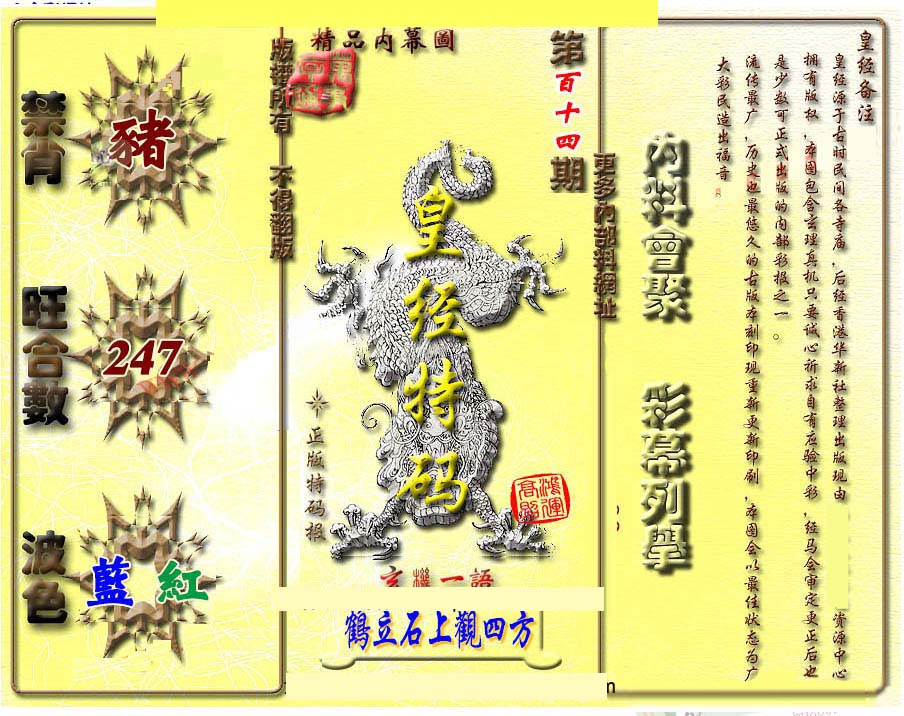 精品内幕圖
第百十四期
版權所有 不得翻版
更多內部料網址
禁肖
豬
旺合數
247
波色
藍 紅
皇经特码
正版特码报
鴻運高照
玄機一語
鶴立石上觀四方
內料會聚
彩幕列舉
皇经备注
皇经源于古时民间各寺庙,后经香港华新社整理出版现由 资源中心
拥有版权,本图包含玄理真机只要诚心祈求自有应验中彩,经马会审定更正后也
是少数可正式出版的内部彩报之一。
流传最广,历史也最悠久的古版本刻印现重新更新印刷,本图会以最佳状态为广
大彩民造出福音